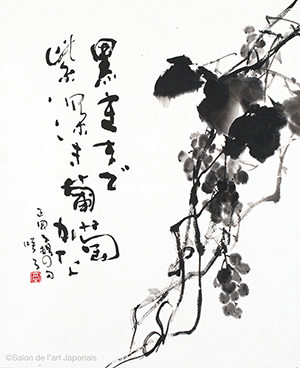 黒きまで
紫深き葡萄かな
正岡子規の句
©Salon de l'art Japonais